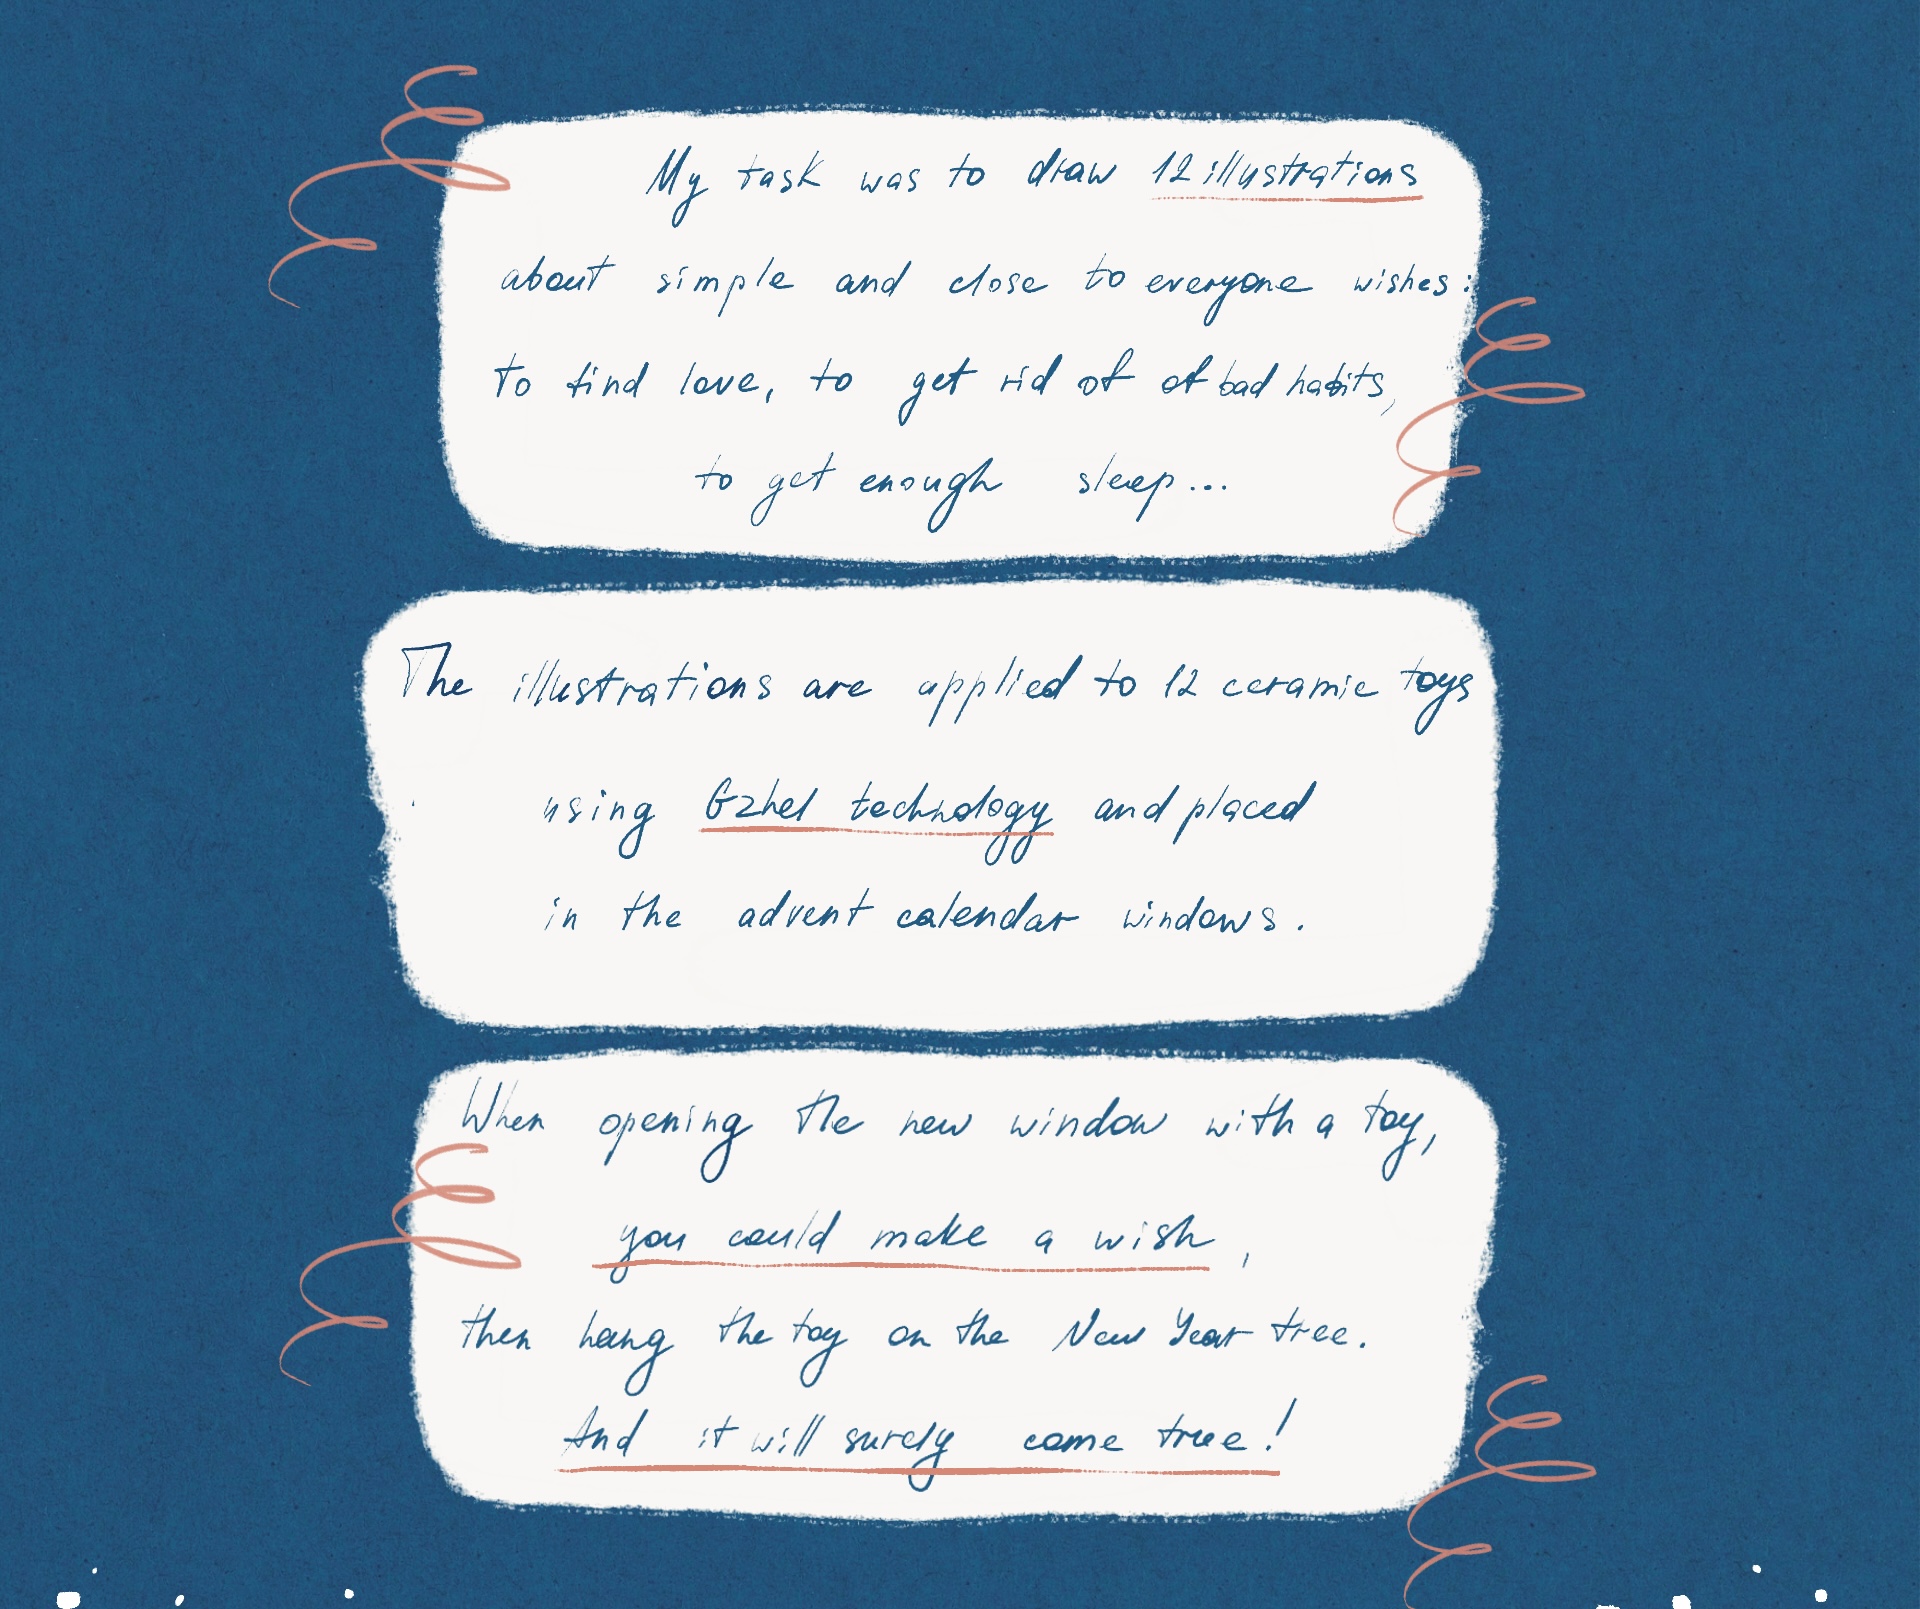 My task was to draw 12 illustrations
about simple and close to everyone wishes:
to find love, to get rid of of bad habits,
to get enough sleep...
The illustrations are applied to 12 ceramic toys
using Gzhel technology and placed
in the advent calendar windows.
When opening the new window with a toy,
you could make a wish,
then hang the toy on the New Year tree.
And it will surely come true!